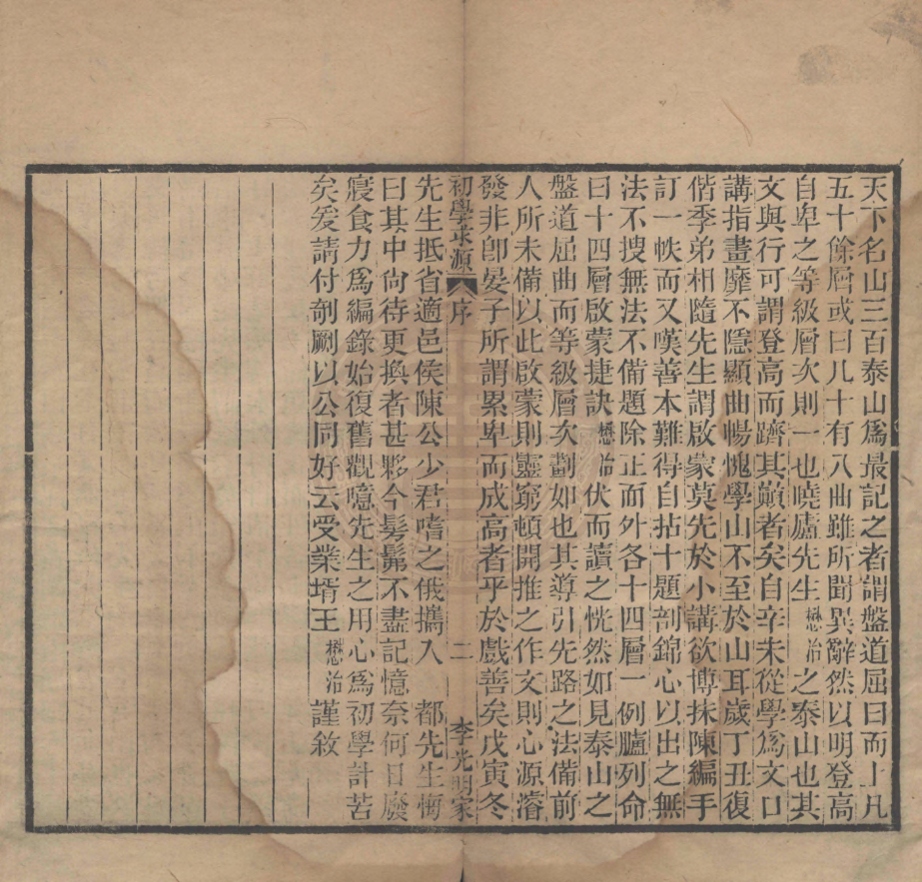 天下名山三百泰山爲最記之者謂盤道屈曰而上凡
五十餘層或曰八十有八曲雖所聞異辭然以明登高
自卑之等級層次則一也曉廬先生懋治之泰山也其
文與行可謂登高而躋其巔者矣自辛未從學爲文口
講指畫靡不隱顯曲暢愧學山不至於山耳歲丁丑復
偕季弟相隨先生謂啟蒙莫先於小講欲博抹陳編手
訂一帙而又嘆善本難得自拈十題剖錦心以出之無
法不搜無法不備題除正而外各十四層一例臚列命
曰十四層啟蒙捷訣懋治伏而讀之恍然如見泰山之
盤道屈曲而等級層次劃如也其導引先路之法備前
人所未備以此啟蒙則靈竅頓開推之作文則心源濬
發非卽晏子所謂累卑而成高者乎於戲善矣戊寅冬
初學求源 序 二 李光明家
先生抵省適邑侯陳公少君嗜之俄攜入 都先生悔
曰其中尙待更換者甚夥今髣髴不盡記憶奈何日廢
寢食力爲編錄始復舊觀噫先生之用心爲初學計苦
矣爰請付剞劂以公同好云受業壻王懋治謹敘